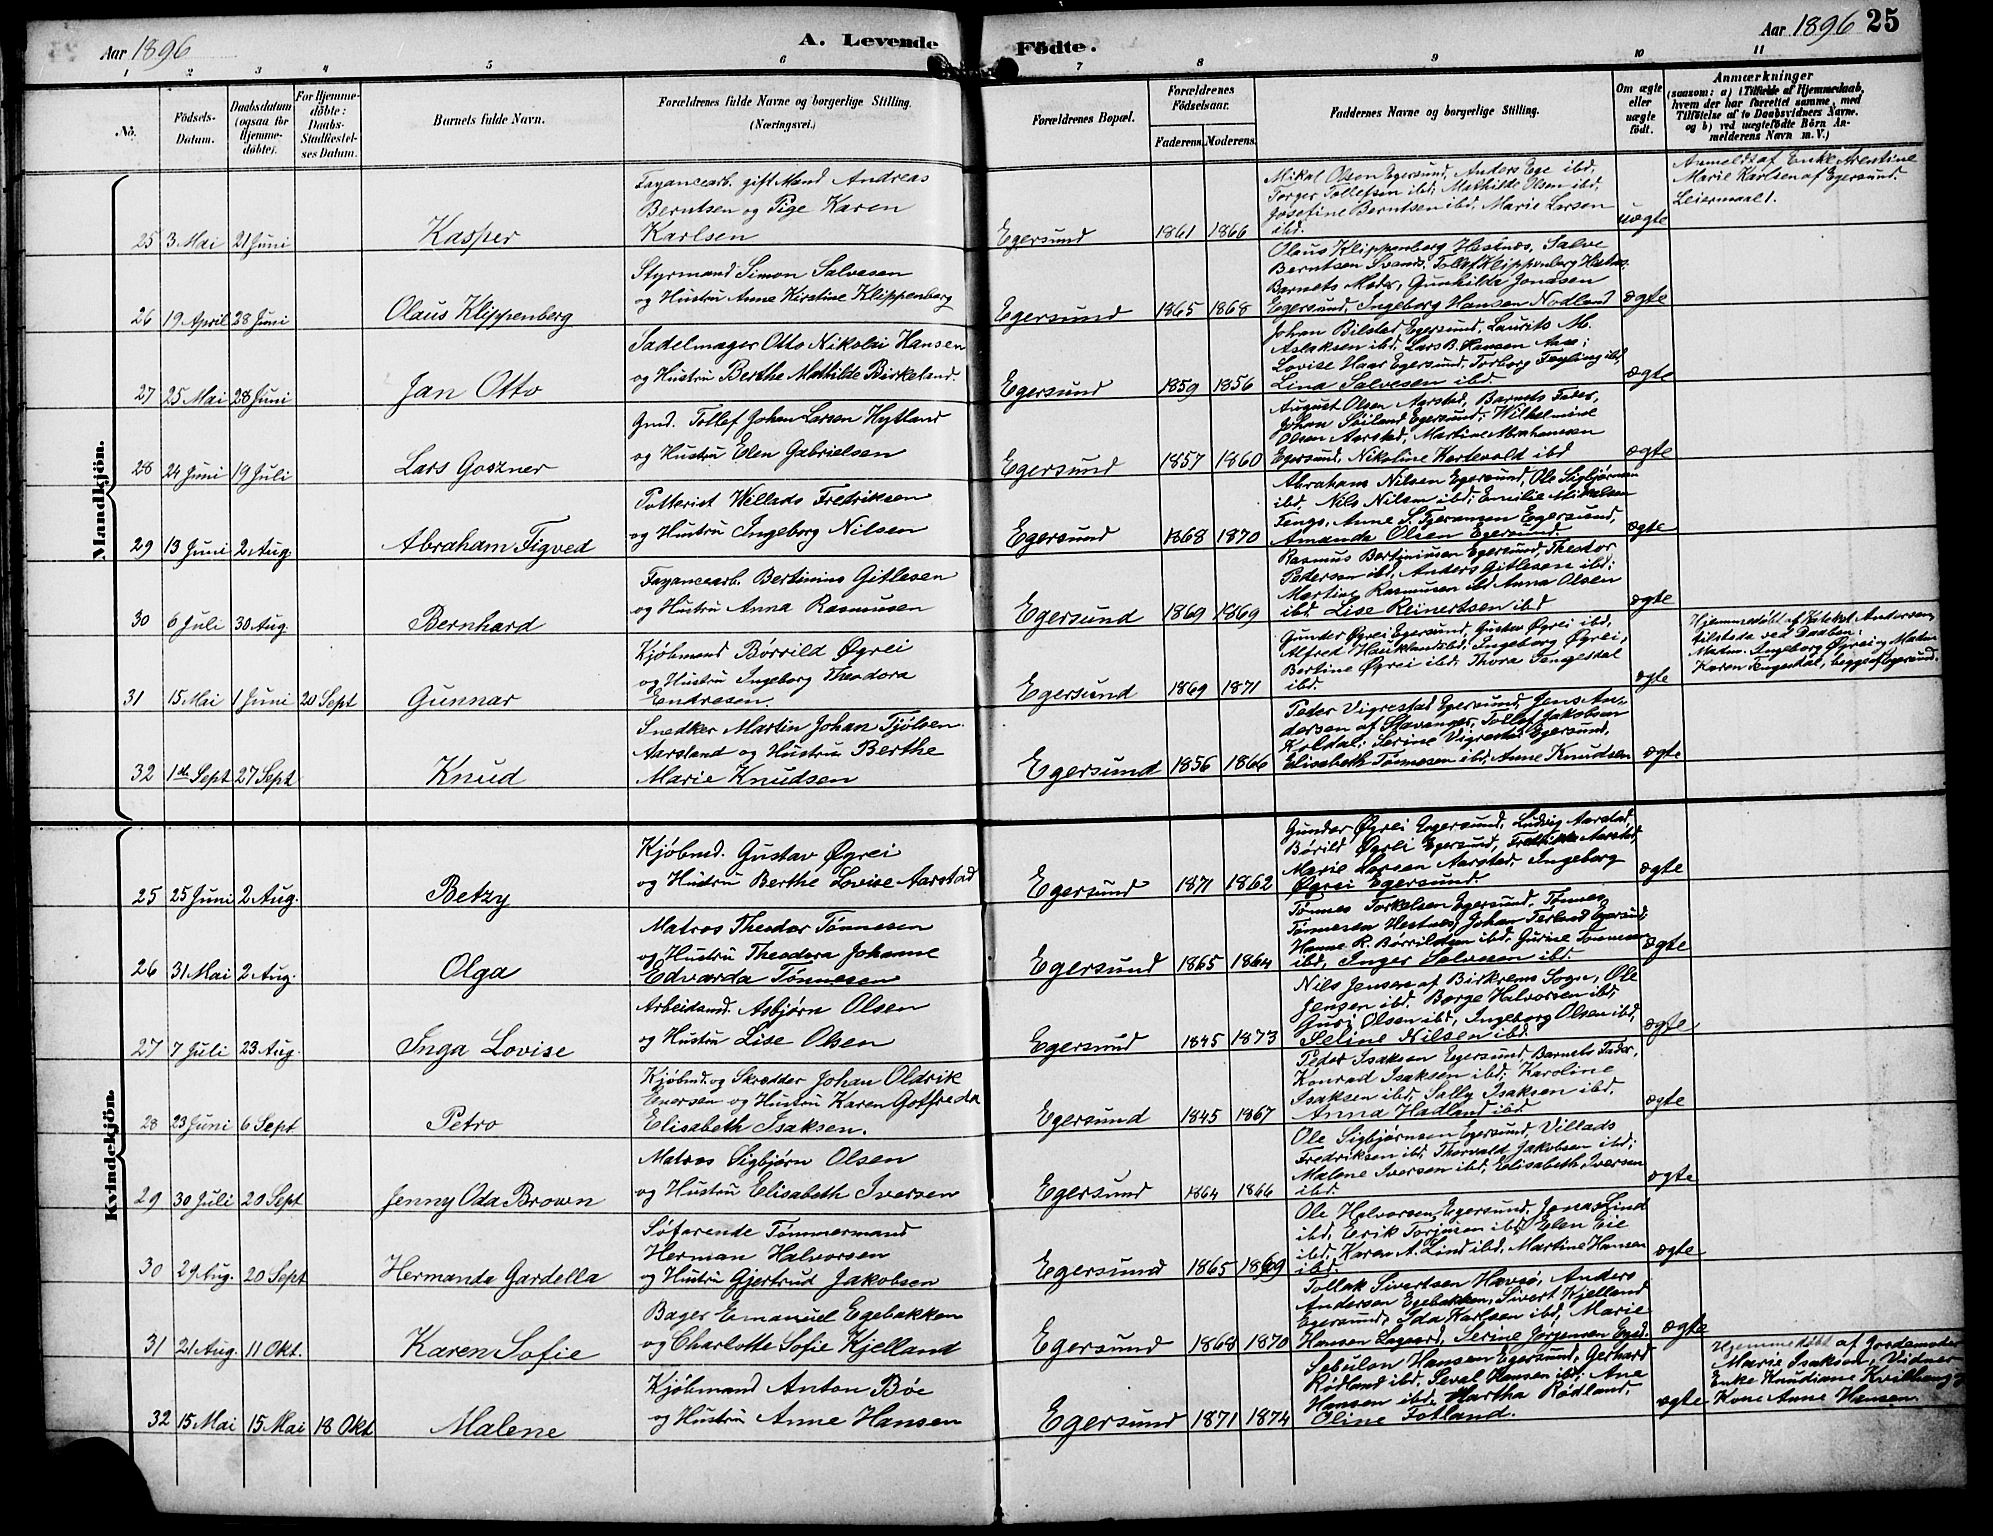 Aar 1896
A. Levende
Fødte.
Aar 1896
25
1 2 3 4 5 6 7 8 9 10 11
No.
Födsels-
Datum.
Daabsdatum
(ogsaa for
Hjemme-
døbte).
For Hjemme-
døbte:
Daabs-
Stadfæstel-
ses Datum.
Barnets fulde Navn.
Forældrenes fulde Navne og borgerlige Stilling.
(Næringsvei.)
Forældrenes Bopæl.
Forældrenes
Fødselsaar.
Faderens. Moderens.
Faddernes Navne og borgerlige Stilling.
Om ægte
eller
uægte
født.
Anmærkninger
(saasom: a) i Tilfælde af Hjemmedaab,
hvem der har forrettet samme, med
Tilføielse af to Daabsvidners Navne.
og b) ved uægtefødte Børn An-
melderens Navn m. V.)
Mandkjön.
25 3 Mai 21 Juni
Kasper
Fayancearb. gift Mand Andreas
Berntsen og Pige Karen
Karlsen
Egersund 1861 1866
Mikal Olsen Egersund, Anders Ege ibd,
Torger Tollefsen ibd, Mathilde Olsen ibd,
Josefine Berntsen ibd, Marie Larsen
ibd.
uægte
Anmeldt af Enke Arentine
Marie Karlsen af Egersund.
Leiermaal 1.
26 19 April 28 Juni
Olaus Klippenberg
Styrmand Simon Salvesen
og Hustru Anne Kirstine Klippenberg
Egersund 1865 1868
Olaus Klippenberg Hestnes, Salve
Berntsen Svands, Tollef Klippenberg Hestnes
Barnets Moder, Gunhilda Jonasen
Egersund, Ingeborg Hansen Nodland
ægte
27 25 Mai 28 Juni
Jan Otto
Sadelmager Otto Nikolai Hansen
og Hustru Berthe Mathilde Birkeland.
Egersund 1859 1856
Johan Bilstad Egersund, Laurits M.
Aslaksen ibd, Lars B. Hansen Aase;
Lovise Haar Egersund, Torborg Feyling ibd,
Lina Salvesen ibd.
ægte
28 24 Juni 19 Juli
Lars Goszner
Gmd. Tollef Johan Larsen Hytland
og Hustru Elen Gabrielsen
Egersund 1857 1860
August Olsen Aarstad, Barnets Fader,
Johan Søiland Egersund; Wilhelmine
Olsen Aarstad, Martine Abrahamsen
Egersund, Nikoline Hartevold ibd
ægte
29 13 Juni 2 Aug.
Abraham Tigved
Potterist Wellads Fredriksen
og Hustru Ingeborg Nilsen
Egersund 1868 1870
Abraham Nilsen Egersund, Ole Sigbjørnsen
ibd, Nils Nilsen ibd; Emilie Mikalsen
Tengs, Anne S. Tjeransen Egersund,
Amanda Olsen Egersund.
ægte
30 6 Juli 30 Aug.
Bernhard
Fayancearb. Bertinius Gitlesen
og Hustru Anna Rasmusen
Egersund 1869 1869
Rasmus Bertiniusen Egersund, Thestor
Pedersen ibd, Anders Gitlesen ibd;
Martine Rasmusen ibd Anna Olsen
ibd. Lise Reinertsen ibd
ægte
31 15 Mai 1 Juni 20 Sept
Gunnar
Kjøbmand Børrild Øgrei
og Hustru Ingeborg Theodora
Endresen.
Egersund 1869 1871
Gunder Øgrei Egersund, Gustav Øgrei ibd,
Alfred Haukland ibd, Ingeborg Øgrei,
Bertine Øgrei ibd, Thora Tengesdal
ibd.
ægte
Hjemmedøbt af Kateket Andersen
tilstede ved Daaben:
Madm. Ingeborg Øgrei og Madm.
Karen Tengesdal, begge af Egersund.
32 1ste Sept 27 Sept
Knud
Snedker Martin Johan Tjølsen
Aarstand og Hustru Berthe
Marie Knudsen
Egersund 1856 1866
Peder Vigrestad Egersund, Jens An-
dersen af Stavanger, Tollef Jakobsen
Koldal; Serine Vigrestad Egersund,
Elisabeth Tønnesen ibd, Anne Knudsen
ægte
Kvindekjön.
25 25 Juni 2 Aug.
Betzy
Kjøbmd. Gustav Øgrei
og Hustru Berthe Lovise Aarstad
Egersund 1871 1862
Gunder Øgrei Egersund, Ludvig Aarstad,
Børild Øgrei Egersund, Fredrikke Aarstad,
Marie Larsen Aarstad, Ingeborg
Øgrei Egersund.
ægte
26 31 Mai 2 Aug.
Olga
Matros Theodor Tønnesen
og Hustru Theodora Johanne
Edvarda Tønnesen
Egersund 1865 1864
Tønnes Torkelsen Egersund, Tønnes
Tønnesen Hestnes, Johan Terland Egersund,
Hanne R. Børrildsen ibd, Gurine Tønnesen
ibd, Inger Salvesen ibd.
ægte
27 7 Juli 23 Aug.
Inga Lovise
Arbeidsmd. Asbjørn Olsen
og Hustru Lise Olsen
Egersund 1845 1873
Nils Jensen af Birkrems Sogn, Ole
Jensen ibd. Børge Halvorsen ibd,
Guri Olsen ibd, Ingeborg Olsen ibd,
Seline Nilsen ibd.
ægte
28 23 Juni 6 Sept
Petro
Kjøbmd. og Skrædder Johan Oldrik
Enersen og Hustru Karen Gotfreda
Elisabeth Isaksen.
Egersund 1845 1867
Peder Isaksen Egersund, Barnets Fader,
Konrad Isaksen ibd; Karoline
Isaksen ibd, Sally Isaksen ibd,
Anna Hadland ibd
ægte
29 30 Juli 20 Sept
Jenny Oda Brown
Matros Sigbjørn Olsen
og Hustru Elisabeth Iversen
Egersund 1864 1866
Ole Sigbjørnsen Egersund, Villads
Fredriksen ibd, Thorvald Jakobsen ibd;
Malene Iversen ibd, Elisabeth Iversen
ibd.
ægte
30 29 Aug. 20 Sept
Hermanda Gardella
Søfarende Tømmermand
Herman Halvorsen
og Hustru Gjertrud Jakobsen
Egersund 1865 1869
Ole Halvorsen Egersund, Jonas Lind
ibd, Erik Torjusen ibd, Elen Eie
ibd, Karen A. Lind ibd, Martine Hansen
ibd.
ægte
31 21 Aug. 11 Okt.
Karen Sofie
Bager Emanuel Egebakken
og Charlotte Sofie Kjelland
Egersund 1868 1870
Tollak Sivertsen Havsø, Anders
Andersen Egebakken, Sivert Kjelland
Egersund, Ida Karlsen ibd, Marie
Hansen Lagaard, Serine Jørgensen Egsd.
ægte
32 15 Mai 15 Mai 18 Okt
Malene
Kjøbmand Anton Bøe
og Hustru Anne Hansen
Egersund 1871 1874
Sebulon Hansen Egersund, Gerhard
Rødland ibd, Seval Hansen ibd, Ane
Hansen ibd, Martha Rødland,
Oline Fotland.
ægte
Hjemmedøbt af Jordemoder
Marie Isaksen, Vidner
Enke Knudiane Kvilhaug og
Kone Anne Hansen.